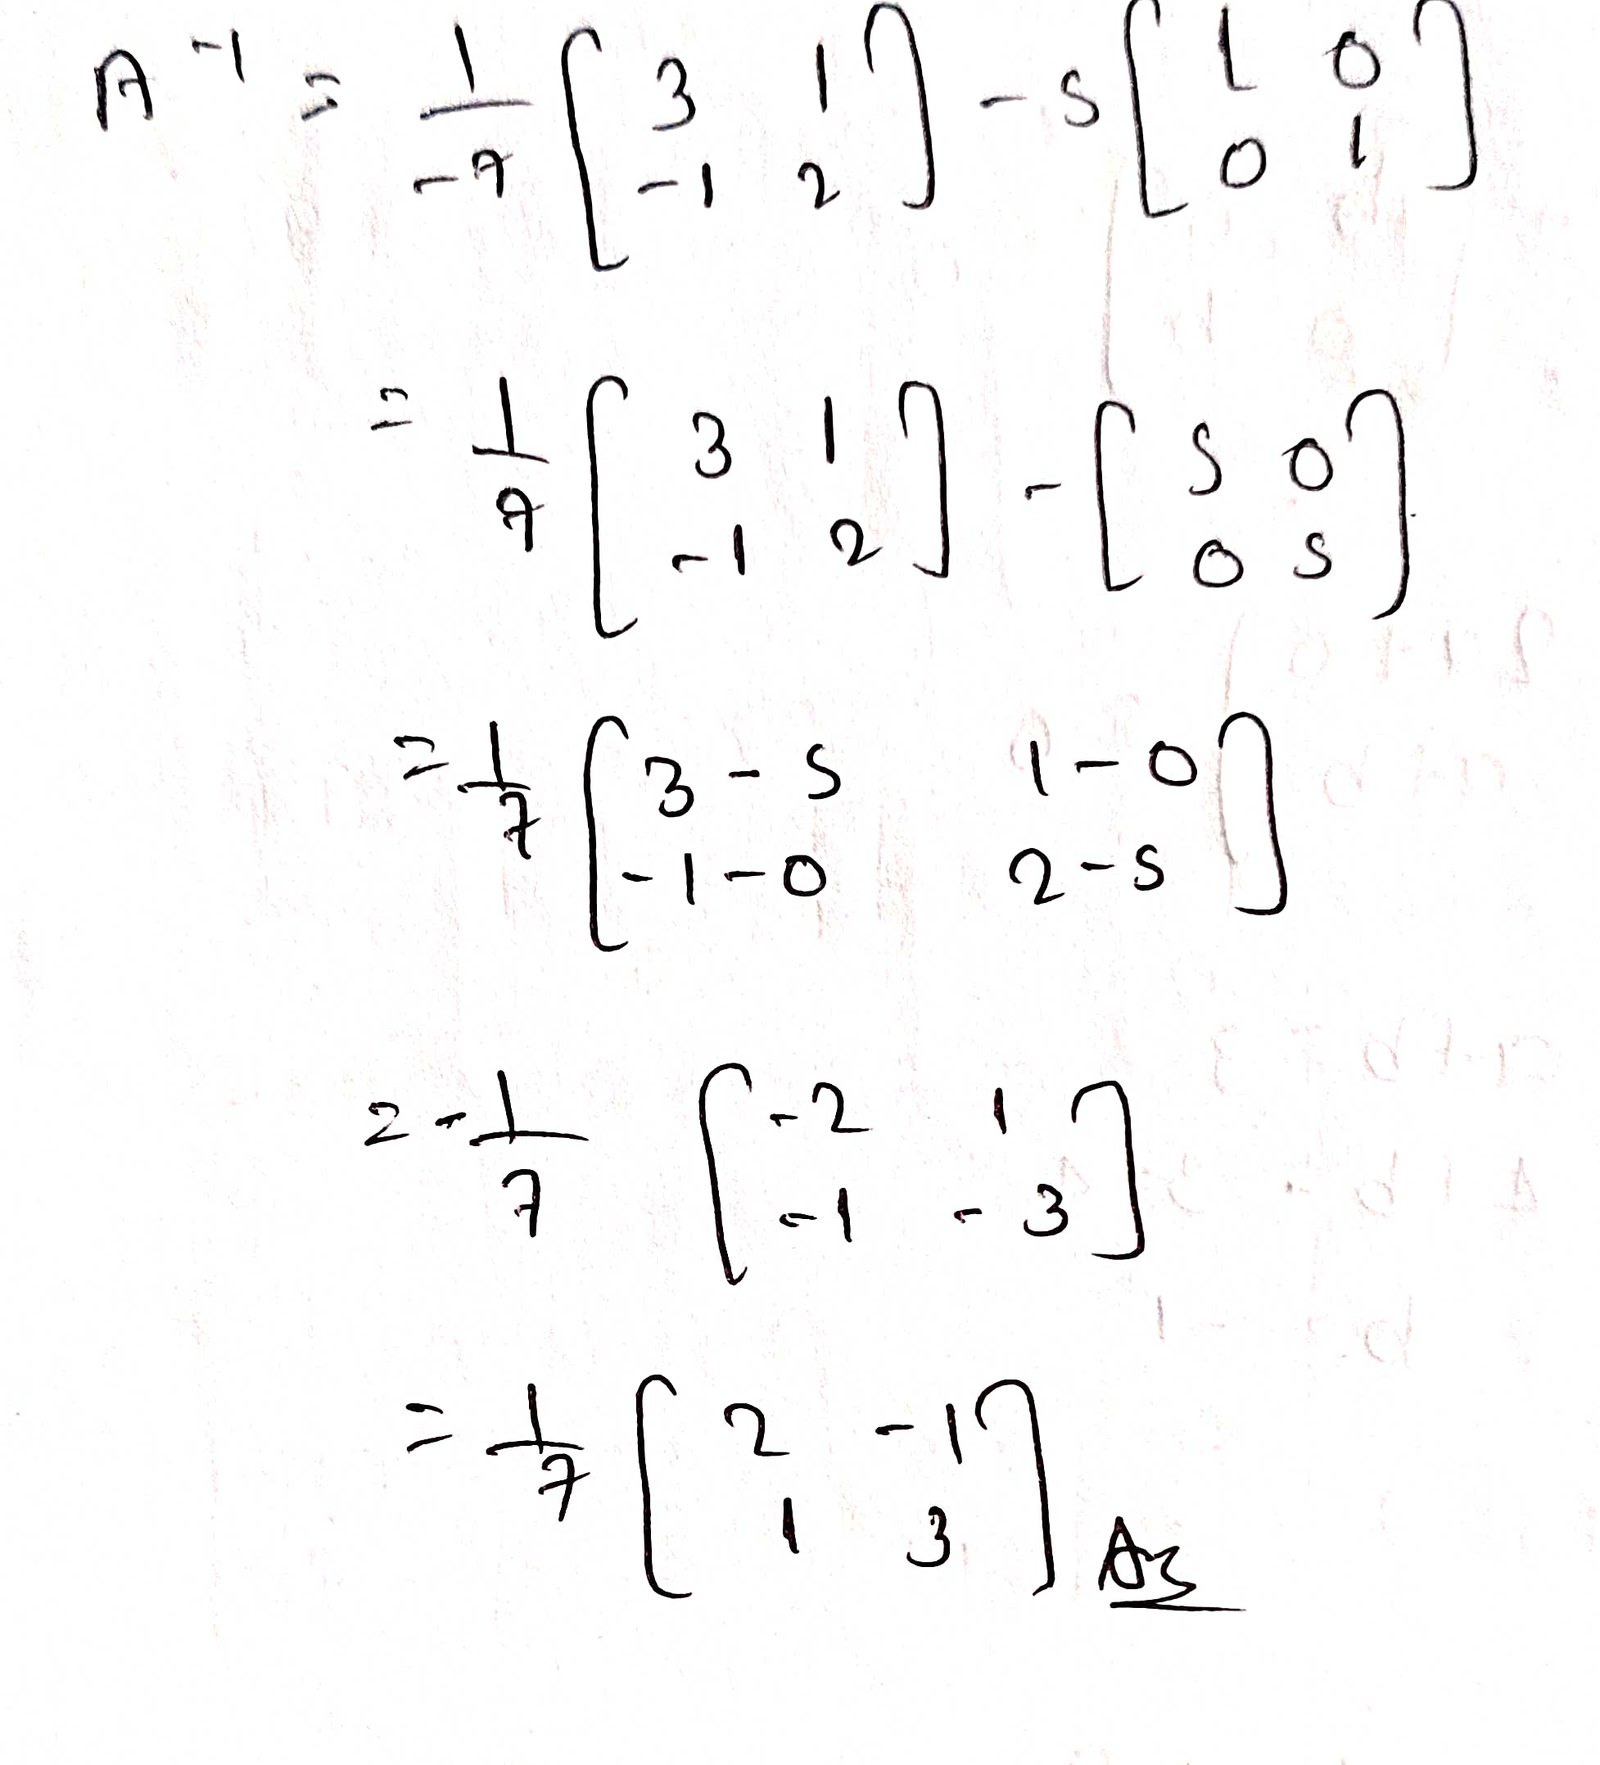 A⁻¹ = 1/-7 [3 1; -1 2] - 5 [1 0; 0 1]
= 1/7 [3 1; -1 2] - [5 0; 0 5]
= 1/7 [3 - 5 1 - 0; -1 - 0 2 - 5]
= -1/7 [-2 1; -1 -3]
= 1/7 [2 -1; 1 3] Ans